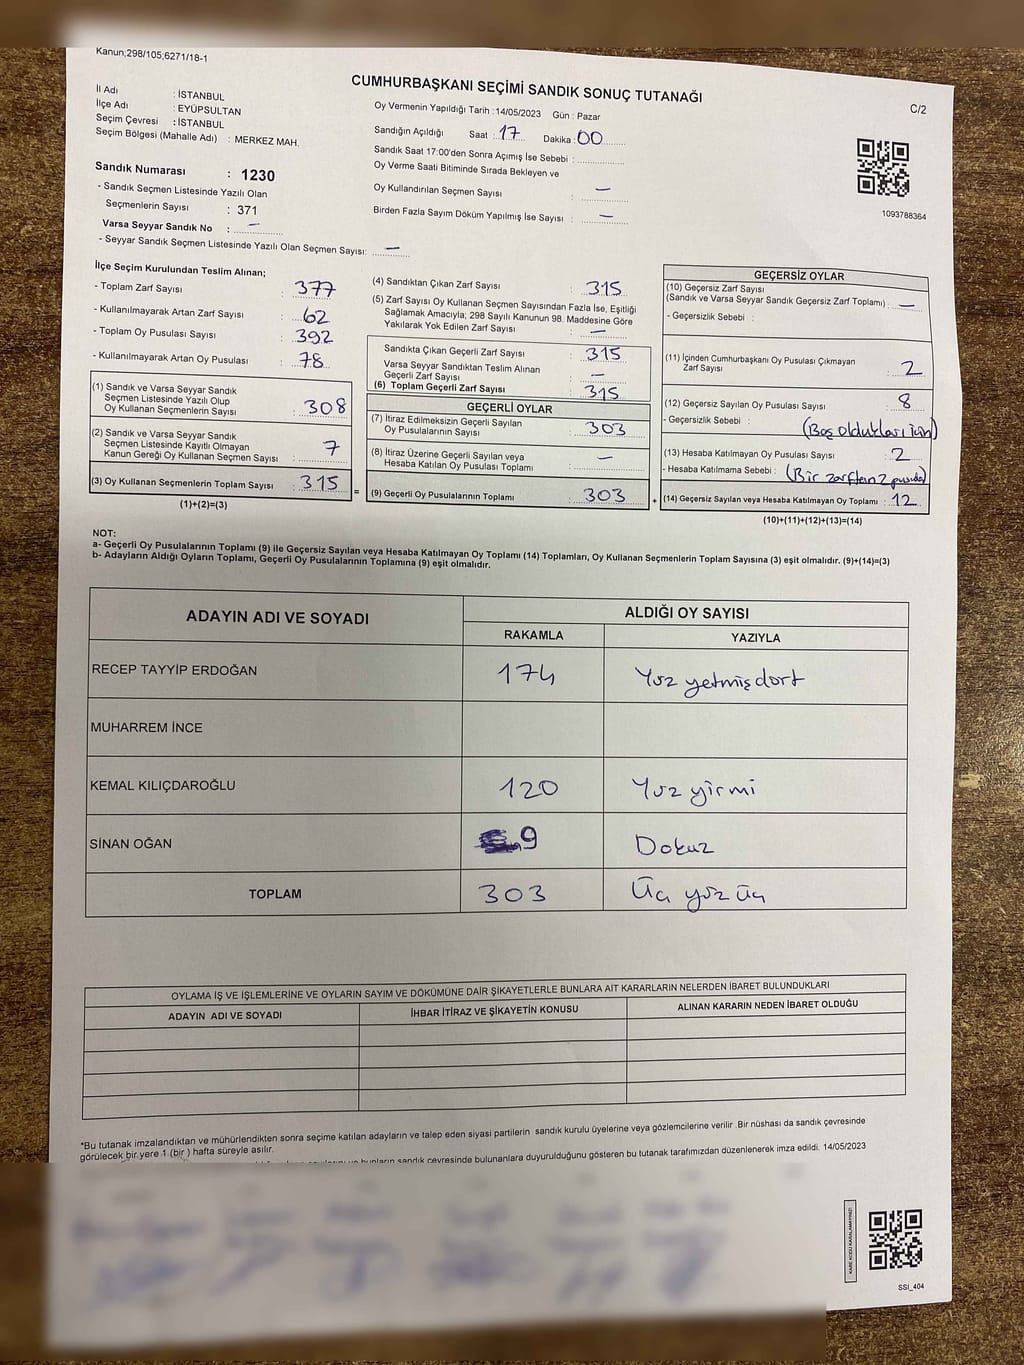 Kanun;298/105;6271/18-1
CUMHURBAŞKANI SEÇİMİ SANDIK SONUÇ TUTANAĞI
C/2
İl Adı : İSTANBUL
İlçe Adı : EYÜPSULTAN
Seçim Çevresi : İSTANBUL
Seçim Bölgesi (Mahalle Adı) : MERKEZ MAH.
Sandık Numarası : 1230
- Sandık Seçmen Listesinde Yazılı Olan
Seçmenlerin Sayısı : 371
Varsa Seyyar Sandık No : —
- Seyyar Sandık Seçmen Listesinde Yazılı Olan Seçmen Sayısı: —
Oy Vermenin Yapıldığı Tarih : 14/05/2023 Gün : Pazar
Sandığın Açıldığı Saat : 17 Dakika : 00
Sandık Saat 17:00'den Sonra Açımış İse Sebebi :
Oy Verme Saati Bitiminde Sırada Bekleyen ve
Oy Kullandırılan Seçmen Sayısı : —
Birden Fazla Sayım Döküm Yapılmış İse Sayısı : —
1093788364
İlçe Seçim Kurulundan Teslim Alınan;
- Toplam Zarf Sayısı : 377
- Kullanılmayarak Artan Zarf Sayısı : 62
- Toplam Oy Pusulası Sayısı : 392
- Kullanılmayarak Artan Oy Pusulası : 78
(1) Sandık ve Varsa Seyyar Sandık
Seçmen Listesinde Yazılı Olup
Oy Kullanan Seçmenlerin Sayısı : 308
(2) Sandık ve Varsa Seyyar Sandık
Seçmen Listesinde Kayıtlı Olmayan
Kanun Gereği Oy Kullanan Seçmen Sayısı : 7
(3) Oy Kullanan Seçmenlerin Toplam Sayısı : 315
(1)+(2)=(3)
=
(4) Sandıktan Çıkan Zarf Sayısı : 315
(5) Zarf Sayısı Oy Kullanan Seçmen Sayısından Fazla İse, Eşitliği
Sağlamak Amacıyla; 298 Sayılı Kanunun 98. Maddesine Göre
Yakılarak Yok Edilen Zarf Sayısı : —
Sandıkta Çıkan Geçerli Zarf Sayısı : 315
Varsa Seyyar Sandıktan Teslim Alınan
Geçerli Zarf Sayısı : —
(6) Toplam Geçerli Zarf Sayısı : 315
GEÇERLİ OYLAR
(7) İtiraz Edilmeksizin Geçerli Sayılan
Oy Pusulalarının Sayısı : 303
(8) İtiraz Üzerine Geçerli Sayılan veya
Hesaba Katılan Oy Pusulası Toplamı : —
(9) Geçerli Oy Pusulalarının Toplamı : 303
+
GEÇERSİZ OYLAR
(10) Geçersiz Zarf Sayısı
(Sandık ve Varsa Seyyar Sandık Geçersiz Zarf Toplamı) : —
- Geçersizlik Sebebi :
(11) İçinden Cumhurbaşkanı Oy Pusulası Çıkmayan
Zarf Sayısı : 2
(12) Geçersiz Sayılan Oy Pusulası Sayısı : 8
- Geçersizlik Sebebi : (Boş oldukları için)
(13) Hesaba Katılmayan Oy Pusulası Sayısı : 2
- Hesaba Katılmama Sebebi : (Bir zarftan 2 pusula)
(14) Geçersiz Sayılan veya Hesaba Katılmayan Oy Toplamı : 12
(10)+(11)+(12)+(13)=(14)
NOT:
a- Geçerli Oy Pusulalarının Toplamı (9) ile Geçersiz Sayılan veya Hesaba Katılmayan Oy Toplamı (14) Toplamları, Oy Kullanan Seçmenlerin Toplam Sayısına (3) eşit olmalıdır. (9)+(14)=(3)
b- Adayların Aldığı Oyların Toplamı, Geçerli Oy Pusulalarının Toplamına (9) eşit olmalıdır.
ADAYIN ADI VE SOYADI ALDIĞI OY SAYISI
RAKAMLA YAZIYLA
RECEP TAYYİP ERDOĞAN 174 Yüz yetmiş dört
MUHARREM İNCE
KEMAL KILIÇDAROĞLU 120 Yüz yirmi
SİNAN OĞAN 9 Dokuz
TOPLAM 303 Üç yüz üç
OYLAMA İŞ VE İŞLEMLERİNE VE OYLARIN SAYIM VE DÖKÜMÜNE DAİR ŞİKAYETLERLE BUNLARA AİT KARARLARIN NELERDEN İBARET BULUNDUKLARI
ADAYIN ADI VE SOYADI İHBAR İTİRAZ VE ŞİKAYETİN KONUSU ALINAN KARARIN NEDEN İBARET OLDUĞU
*Bu tutanak imzalandıktan ve mühürlendikten sonra seçime katılan adayların ve talep eden siyasi partilerin sandık kurulu üyelerine veya gözlemcilerine verilir .Bir nüshası da sandık çevresinde
görülecek bir yere 1 (bir ) hafta süreyle asılır.
sandık çevresinde bulunanlara duyurulduğunu gösteren bu tutanak tarafımızdan düzenlenerek imza edildi. 14/05/2023
KARE KODU KARALAMAYINIZ!
SSI_404